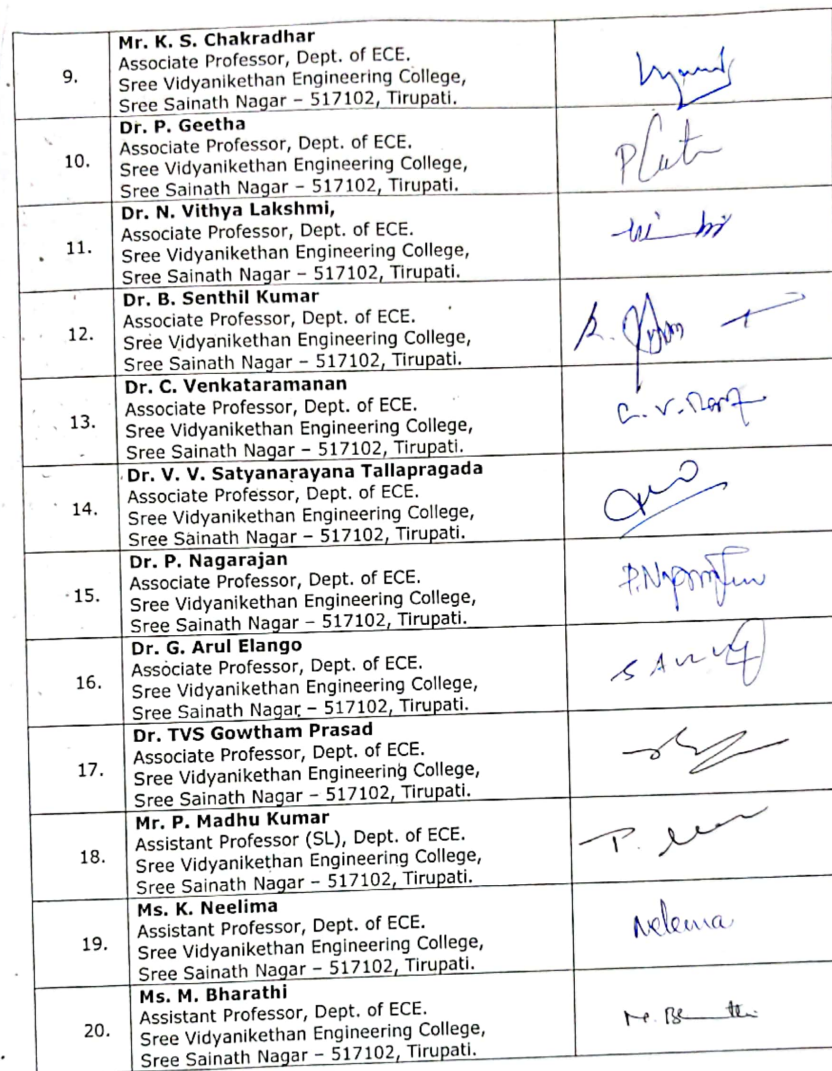 9.
Mr. K. S. Chakradhar
Associate Professor, Dept. of ECE.
Sree Vidyanikethan Engineering College,
Sree Sainath Nagar – 517102, Tirupati.
10.
Dr. P. Geetha
Associate Professor, Dept. of ECE.
Sree Vidyanikethan Engineering College,
Sree Sainath Nagar – 517102, Tirupati.
11.
Dr. N. Vithya Lakshmi,
Associate Professor, Dept. of ECE.
Sree Vidyanikethan Engineering College,
Sree Sainath Nagar – 517102, Tirupati.
12.
Dr. B. Senthil Kumar
Associate Professor, Dept. of ECE.
Sree Vidyanikethan Engineering College,
Sree Sainath Nagar – 517102, Tirupati.
13.
Dr. C. Venkataramanan
Associate Professor, Dept. of ECE.
Sree Vidyanikethan Engineering College,
Sree Sainath Nagar – 517102, Tirupati.
14.
Dr. V. V. Satyanarayana Tallapragada
Associate Professor, Dept. of ECE.
Sree Vidyanikethan Engineering College,
Sree Sainath Nagar – 517102, Tirupati.
15.
Dr. P. Nagarajan
Associate Professor, Dept. of ECE.
Sree Vidyanikethan Engineering College,
Sree Sainath Nagar – 517102, Tirupati.
16.
Dr. G. Arul Elango
Associate Professor, Dept. of ECE.
Sree Vidyanikethan Engineering College,
Sree Sainath Nagar – 517102, Tirupati.
17.
Dr. TVS Gowtham Prasad
Associate Professor, Dept. of ECE.
Sree Vidyanikethan Engineering College,
Sree Sainath Nagar – 517102, Tirupati.
18.
Mr. P. Madhu Kumar
Assistant Professor (SL), Dept. of ECE.
Sree Vidyanikethan Engineering College,
Sree Sainath Nagar – 517102, Tirupati.
19.
Ms. K. Neelima
Assistant Professor, Dept. of ECE.
Sree Vidyanikethan Engineering College,
Sree Sainath Nagar – 517102, Tirupati.
20.
Ms. M. Bharathi
Assistant Professor, Dept. of ECE.
Sree Vidyanikethan Engineering College,
Sree Sainath Nagar – 517102, Tirupati.